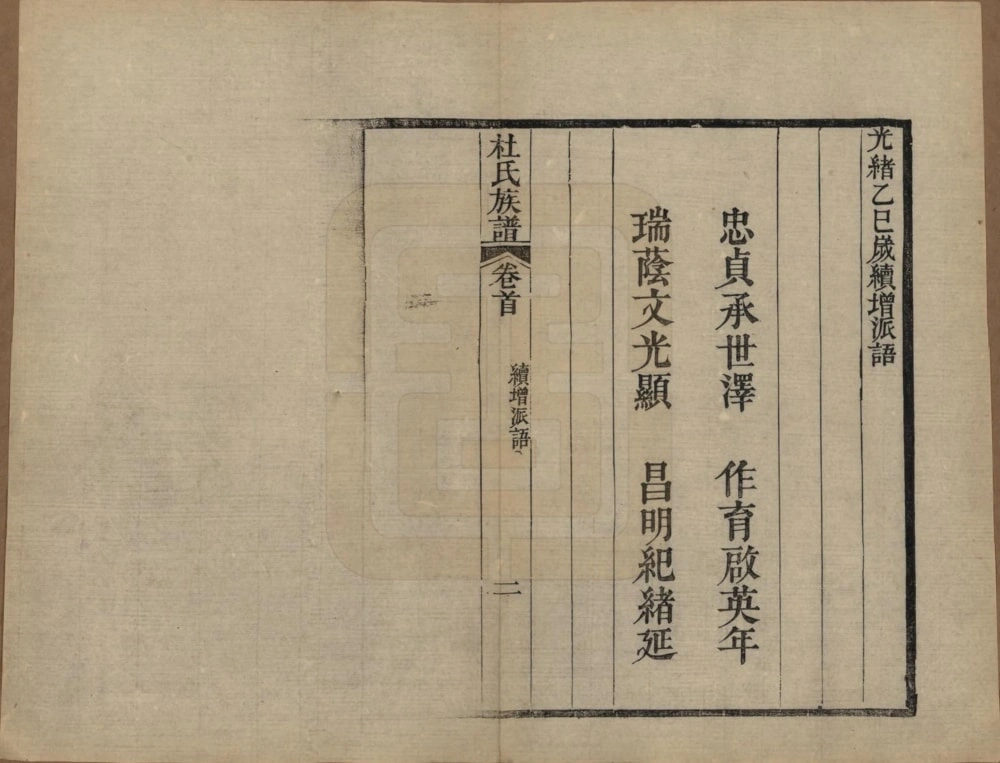 光緒乙巳歲續增派語
忠貞承世澤　作育啟英年
瑞蔭文光顯　昌明紀緒延
杜氏族譜　卷首　續增派語　二